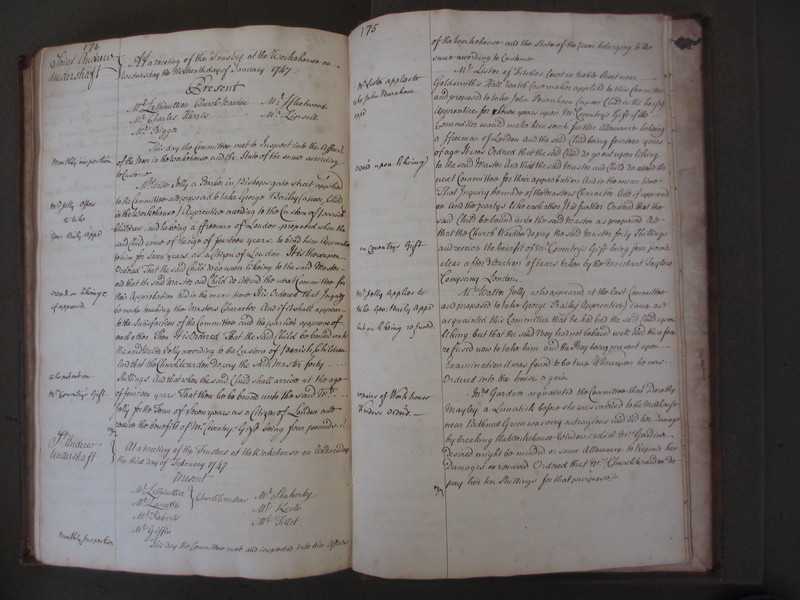 174
Saint Andrew
Undershaft
At a meeting of the Trustees at the Workhouse on
Wednesday the day of January 1747
Present
Mr Lethieullier Church Warden Mr Fleetwood
Mr Charles Harris
Mr Biggs
Monthly inspection
This day the Committee met to Inspect into the Affairs
of the Poor in the Workhouse and the State of the same according
to Custom
Mr Jolly offers
to take
Geo Baily Appr
Mr Jolly a in Bishopsgate street applied
to the Committee and proposed to take George Bailey (a poor Child
in the Workhouse) Apprentice according to the Custom of parish
Children and being a ffreeman of London proposed when the
said Child came of the age of fourteen years to bind him Apprentice
to him for seven years as a Citizen of London It is thereupon
Ordered That the said Child do go upon likeing to the said Master
and that the said Master and Child do attend the next Committee for
their Approbation And in the mean time It is Ordered that Inquiry
be made touching the Masters Character And if it shall appear
to the Satisfaction of the Committee and the parties approve of
each other Then It is Ordered That the said Child be bound unto
the said Jolly according to the Custom of Parish Children
And that the Churchwarden do pay the said Master forty
shillings And that when the said Child shall arrive at the age
of fourteen years That then he be bound unto the said Mr
Jolly for the Term of seven years as a Citizen of London and
receive the benefit of Mr Coventry's Gift being four pounds
Mr Coventry's Gift
St Andrew
Undershaft
At a meeting of the Trustees at the Workhouse on Wednesday
the first day of February 1747
Present
Mr Lethieullier Churchwardens
Mr Roberts
Mr Giffin
Monthly Inspection
This day the Committee met and inspected into the Affairs
175
of the Workhouse and the State of the poor belonging to the
same according to Custom
Mr Lister applies to
take John Burnham
appr
Mr Lister of Court in Noble Street near
Goldsmiths Hall Watch Case maker applied to this Committee
and proposed to take John Burnham (a poor Child in the house)
Apprentice for seven years upon Mr Coventry's Gift if the
Committee would make him some further allowance he being
a ffreeman of London And the said Child being fourteen years
of age It was Ordered that the said Child do go out upon likeing
to the said Master And that the said Master and Child do attend the
next Committee for their approbation And in the mean time
That Inquiry be made of the Masters Character And if approved
on And the partys like each other It is further Ordered that the
said Child be bound unto the said Master as proposed And
that the Church Warden do pay the said Master forty Shillings
and receive the benefit of Mr Coventry's Gift being four pounds
clear after deduction of taxes taken by the Merchant Taylors
Company London
on Coventry's Gift
Mr Jolly Applies to
take Geo. Baily Appr
but on likeing refused
Mr Jolly who appeared at the last Committee
and proposed to take George Bailey Apprentice) came and
acquainted this Committee that he had had the said Child upon
liking but that the said Boy had not behaved well and therefore
refused now to take him and the Boy being present upon
Examination it was found to be true Whereupon he was
Ordered into the house again
repairs of Workhouse
Windows order'd
Mrs Gardom acquainted the Committee that Dorothy
Mayley a Lunatick before she was carried to the Madhouse
near Bethnal Green was very outragious and did him damage
by breaking the Workhouse Windows which Mrs Gardom
desired might be mended or some Allowance to Repair her
Damages so received Ordered that Mr Churchwarden do
pay her ten Shillings for that purpose